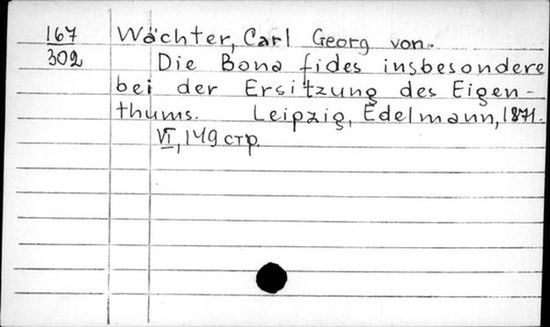 167
302
Wächter, Carl Georg von.
Die Bona fides insbesondere
bei der Ersitzung des Eigen-
thums. Leipzig, Edelmann, 1871.
VI, 149 стр.